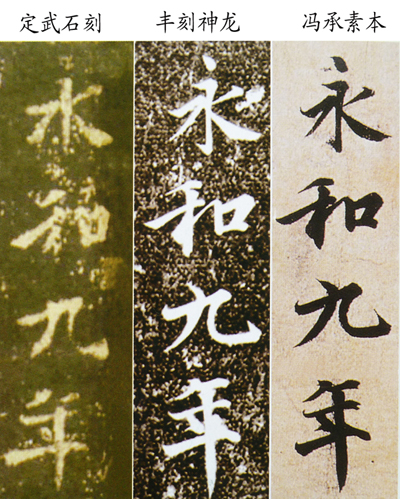 定武石刻 丰刻神龙 冯承素本
永和九年
永和九年
永和九年